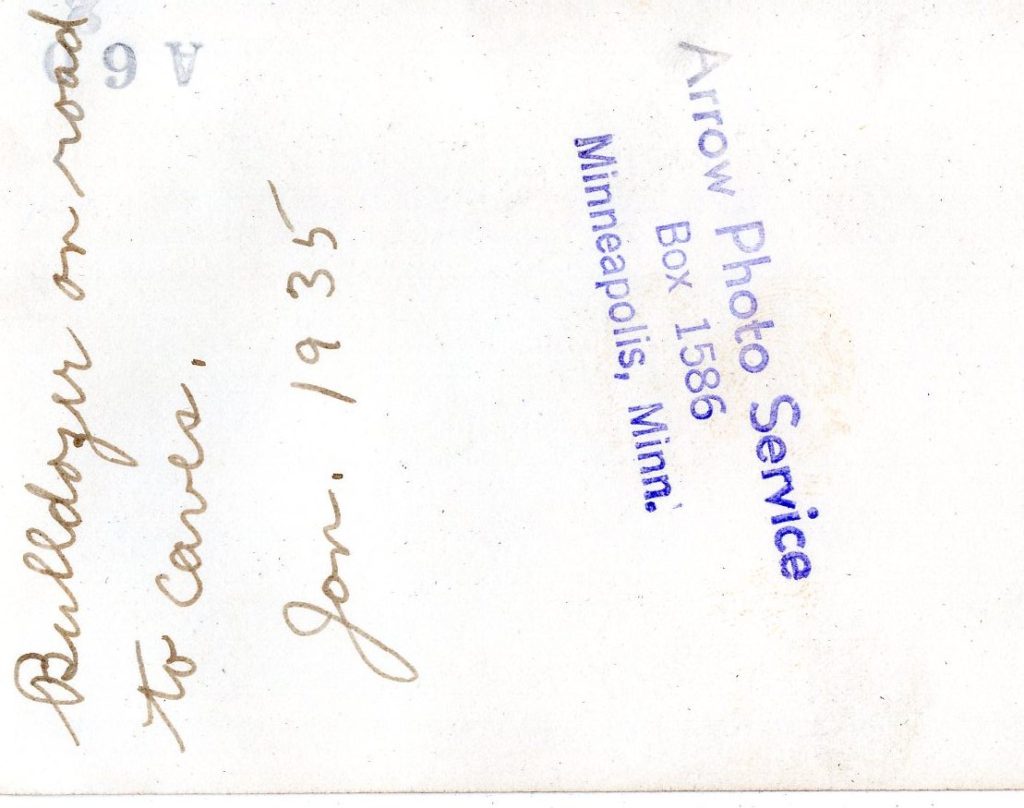 Bulldozer on road
to caves.
Jan. 1935
Arrow Photo Service
Box 1586
Minneapolis, Minn.